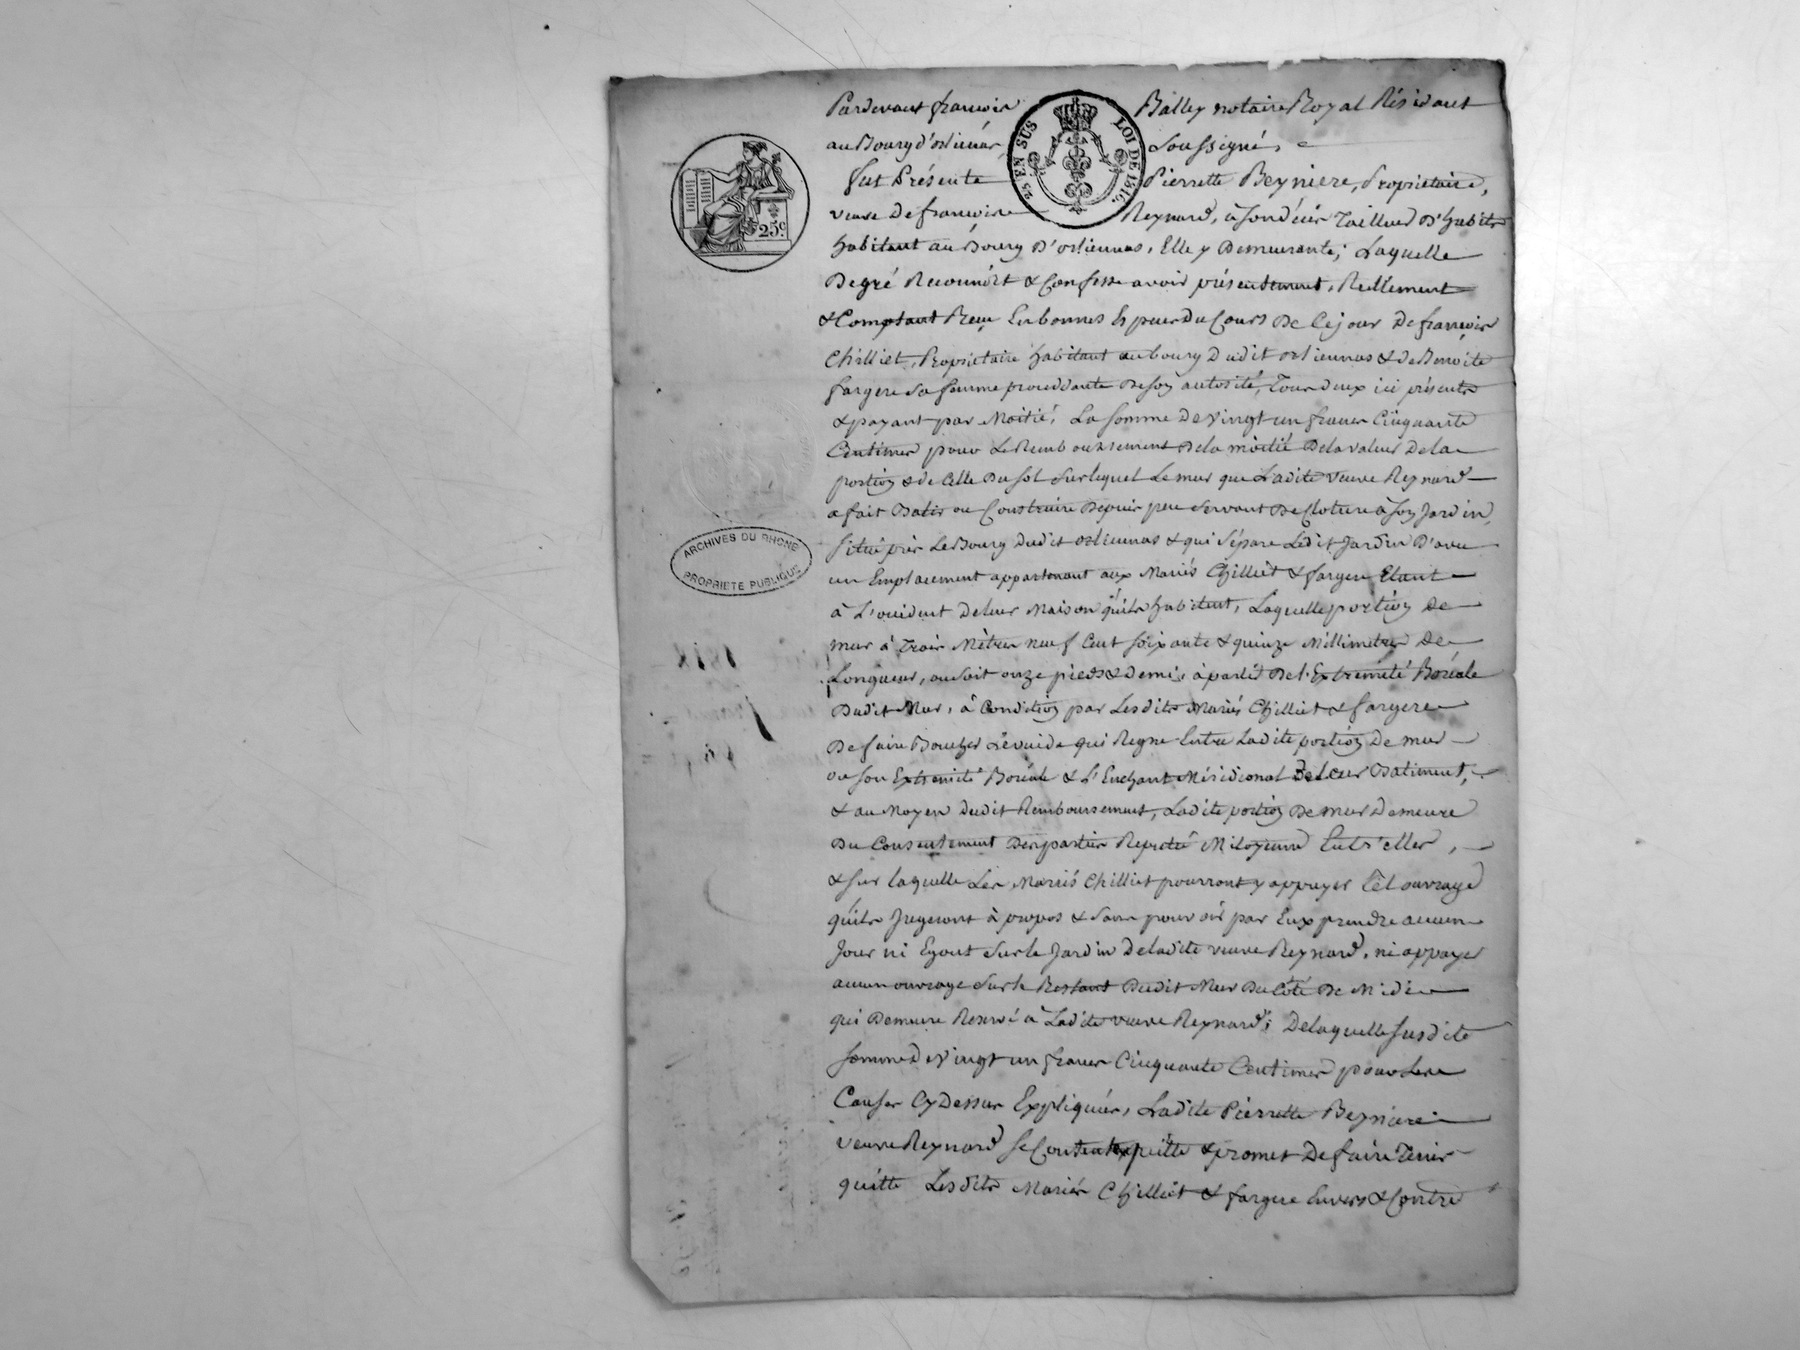 Pardevant françois Balley notaire Royal Résidant
au Bourg d'orliénas, Soussigné,
fut Présente Pierrette Beyniere, Propriétaire,
veuve De françois Reynard, à son décès Tailleur D'habits
habitant au Bourg D'orliennas, Elle y Demeurante; Laquelle
De gré Reconnoît & Confesse avoir présentement, Réellement
& Comptant Reçu En bonnes Espèces Du Cours De Ce jour De françois
Chilliet, Propriétaire habitant au bourg Dudit orliennas & de Benoite
fargere Sa femme procédante De Son autorité, Tous Deux ici présents
& payant par Moitié, La Somme De Vingt un francs Cinquante
Centimes pour Le Remboursement De la moitié De la valeur De la
portion & de Celle Du Sol Sur lequel Le mur que Ladite Veuve Reynard
a fait Batir ou Construire Depuis peu Servant De Cloture à Son Jardin,
Situé près Le Bourg Dudit orliennas & qui Sépare Ledit Jardin D'avec
un Emplacement appartenant aux Mariés Chilliet & fargere Etant
à L'ouident De leur Maison qu'ils habitent, Laquelle portion De
mur à Trois Mètres neuf Cent Soixante & quinze Millimetres De
Longueur, ou Soit onze pieds & demi, à partir De L'Extremité Boréale
Dudit Mur, à Condition par Lesdits Mariés Chilliet & fargere
De faire Boucher Le vuide qui Regne Entre Ladite portion De mur
ou Son Extremité Boréale & L'Enchant Méridional De Leur Batiment,
& au Moyen Dudit Remboursement, Ladite portion De mur Demeure
Du Consentement Des parties Reputée Mitoyenne Entr'elles,
& Sur laquelle Les Mariés Chilliet pourront y appuyer Tel ouvrage
qu'ils Jugeront à propos & Sans pouvoir par Eux prendre aucun
Jour ni Egout Sur le Jardin De ladite veuve Reynard, ni appuyer
aucun ouvrage Sur le Restant Dudit Mur Du Côté De Midi
qui Demeure Reservé à Ladite veuve Reynard; De laquelle Susdite
Somme De Vingt un francs Cinquante Centimes pour Les
Causes Cy Dessus Expliquées, Ladite Pierrette Beyniere
veuve Reynard Se Contente quitte & promet De faire Tenir
quitte Lesdits Mariés Chilliet & fargere Envers & Contre
25 c
25 C. EN SUS LOI DE 1816.
ARCHIVES DU RHONE
PROPRIETE PUBLIQUE